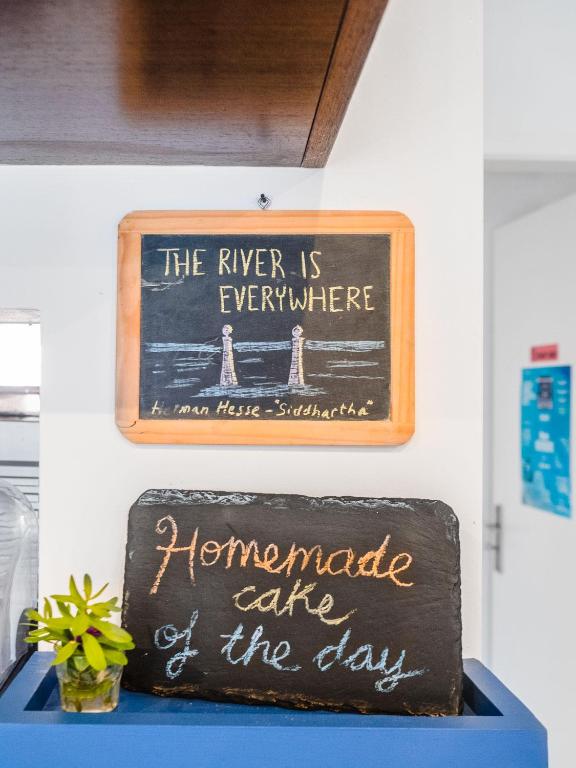 THE RIVER IS
EVERYWHERE
Herman Hesse - "Siddhartha"
Homemade
cake
of the day